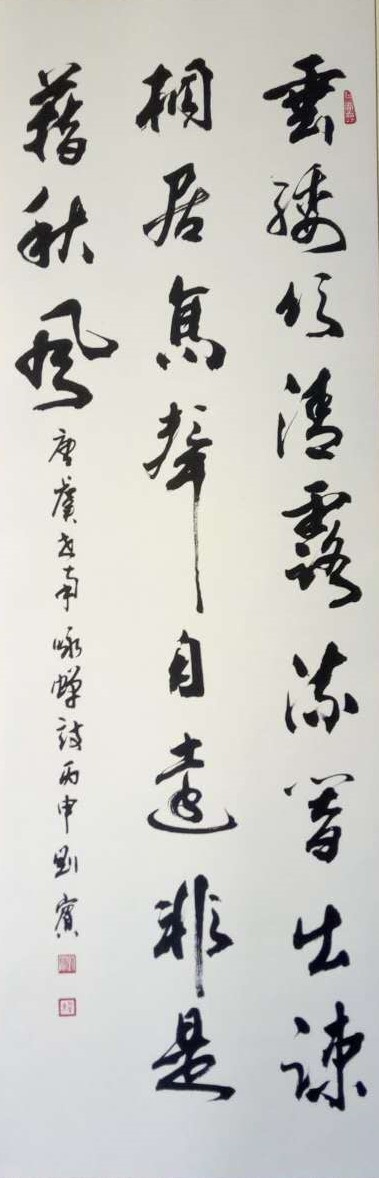 垂緌飲清露流響出疎
桐居高聲自遠非是
藉秋風
唐虞世南咏蟬詩丙申劉賓